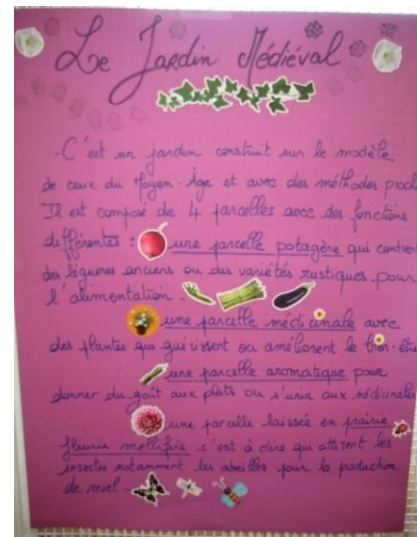 Le Jardin Médiéval
- C'est un jardin construit sur le modèle
de ceux du Moyen-Âge et avec des méthodes
Il est composé de 4 parcelles avec des fonctions
différentes : une parcelle potagère qui contient
des légumes anciens ou des variétés rustiques pour
l'alimentation.
une parcelle médicinale avec
des plantes qui guérissent ou améliorent le bien-être
une parcelle aromatique pour
donner du goût aux plats ou s'unir aux médicinales
une parcelle laissée en prairie
fleurie mellifère c'est à dire qui attirent les
insectes notamment les abeilles pour la production
de miel.